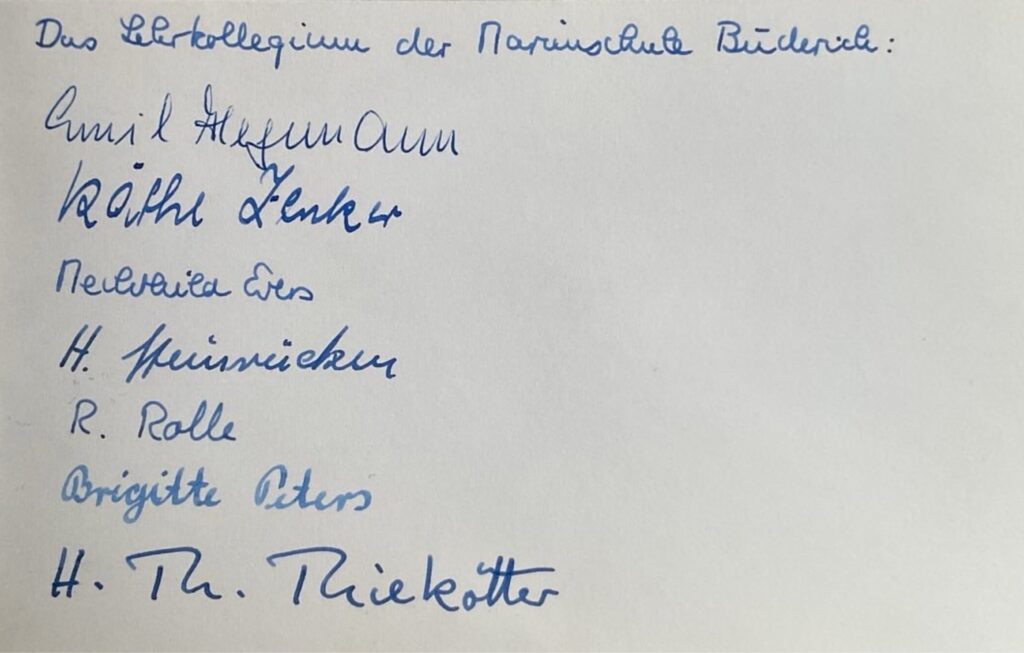 Das Lehrkollegium der Marienschule Büderich:
Emil Hegemann
Käthe Zenker
Mechthild Evers
H. Steinrücken
R. Rolle
Brigitte Peters
H. Th. Thiekötter